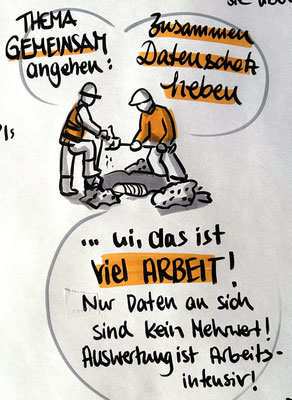 sie übe
THEMA
GEMEINSAM
angehen:
Zusammen
Datenschatz
heben
... ui, das ist
viel ARBEIT!
Nur Daten an sich
sind kein Mehrwert!
Auswertung ist Arbeits-
intensiv!